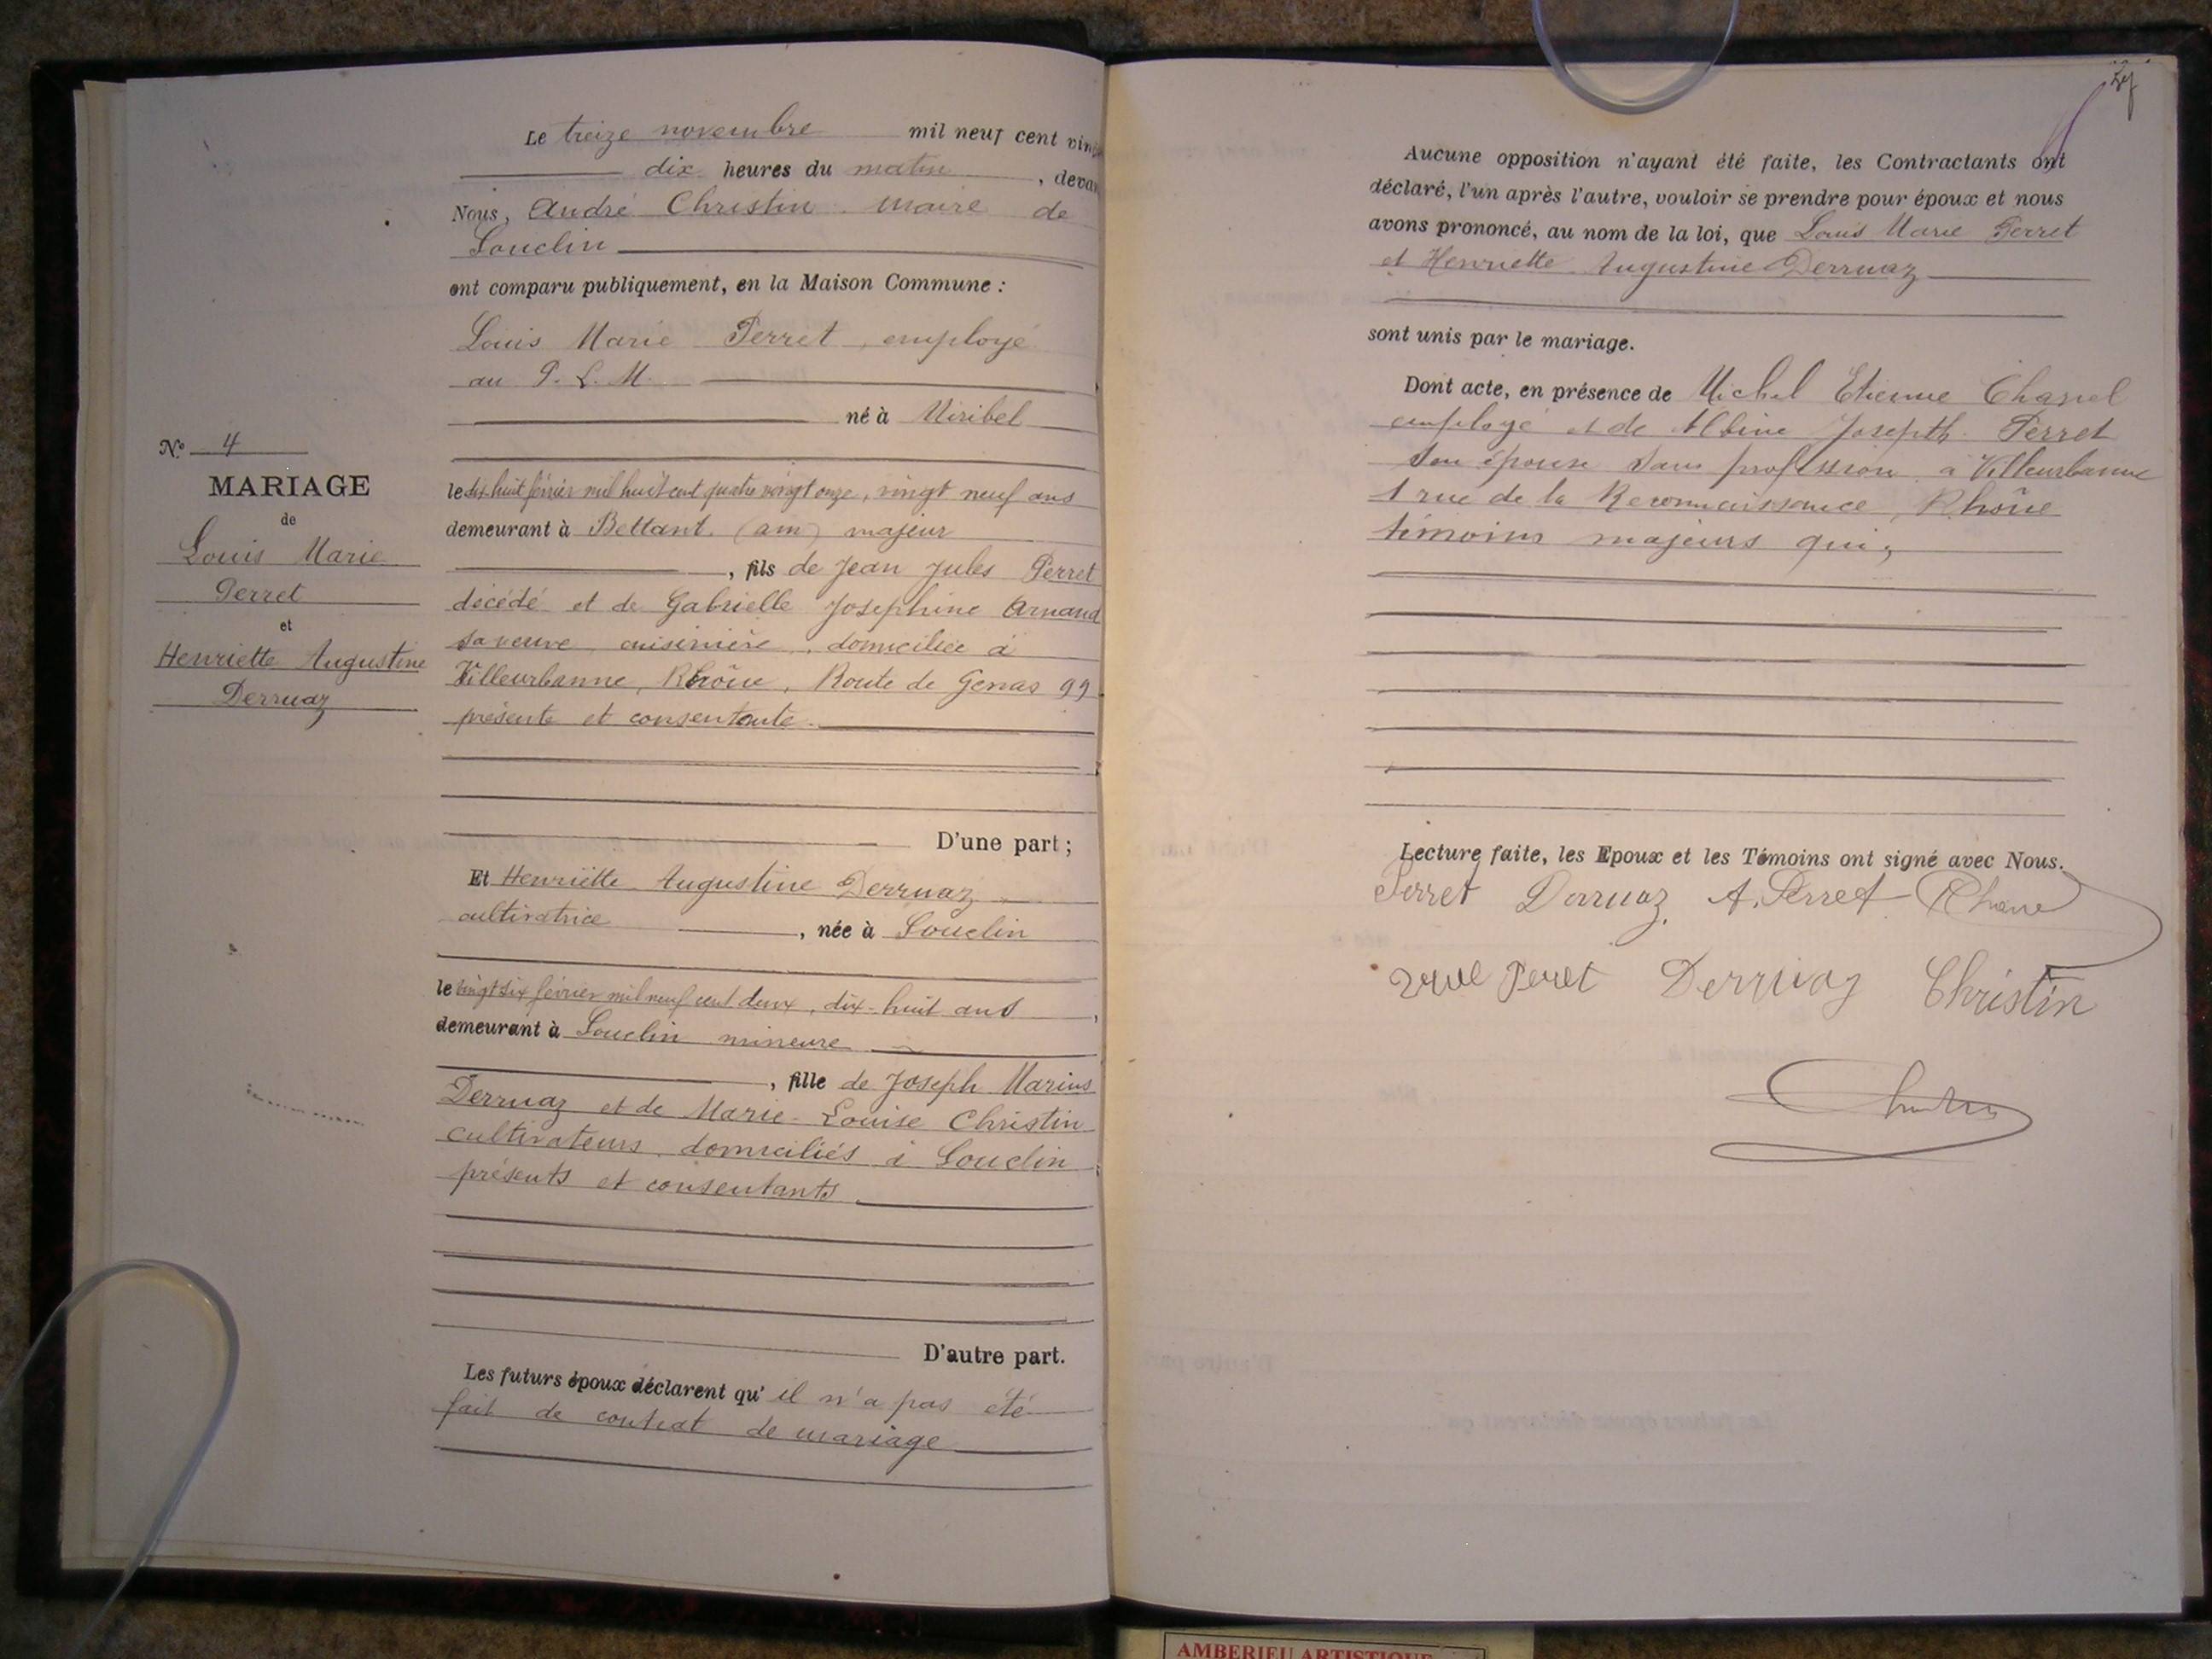 Le treize novembre mil neuf cent vin
dix heures du matin, devan
Nous, André Christin maire de
Souclin
ont comparu publiquement, en la Maison Commune :
Louis Marie Perret, employé
au P. L. M.
né à Miribel
N° 4
MARIAGE
de
Louis Marie
Perret
et
Henriette Augustine
Derruaz
le dix huit février mil huit cent quatre vingt onze, vingt neuf ans
demeurant à Bettant (ain) majeur
, fils de Jean Jules Perret
décédé et de Gabrielle Joséphine Arnaud
sa veuve, cuisinière, domiciliée à
Villeurbanne, Rhône, Route de Genas 99
présente et consentante.
D'une part ;
Et Henriette Augustine Derruaz
cultivatrice, née à Souclin
le vingt six février mil neuf cent deux, dix-huit ans,
demeurant à Souclin mineure
, fille de Joseph Marius
Derruaz et de Marie-Louise Christin
cultivateurs domiciliés à Souclin,
présents et consentants
D'autre part.
Les futurs époux déclarent qu'il n'a pas été
fait de contrat de mariage
Aucune opposition n'ayant été faite, les Contractants ont
déclaré, l'un après l'autre, vouloir se prendre pour époux et nous
avons prononcé, au nom de la loi, que Louis Marie Perret
et Henriette Augustine Derruaz
sont unis par le mariage.
Dont acte, en présence de Michel Etienne
employé et de Albine Josepth Perret
son épouse sans profession à Villeurbanne
1 rue de la Reconnaissance, Rhône
témoins majeurs qui,
Lecture faite, les Epoux et les Témoins ont signé avec Nous.
Perret Derruaz A. Perret
Perret Derruaz Christin
AMBERIEU ARTISTIQUE